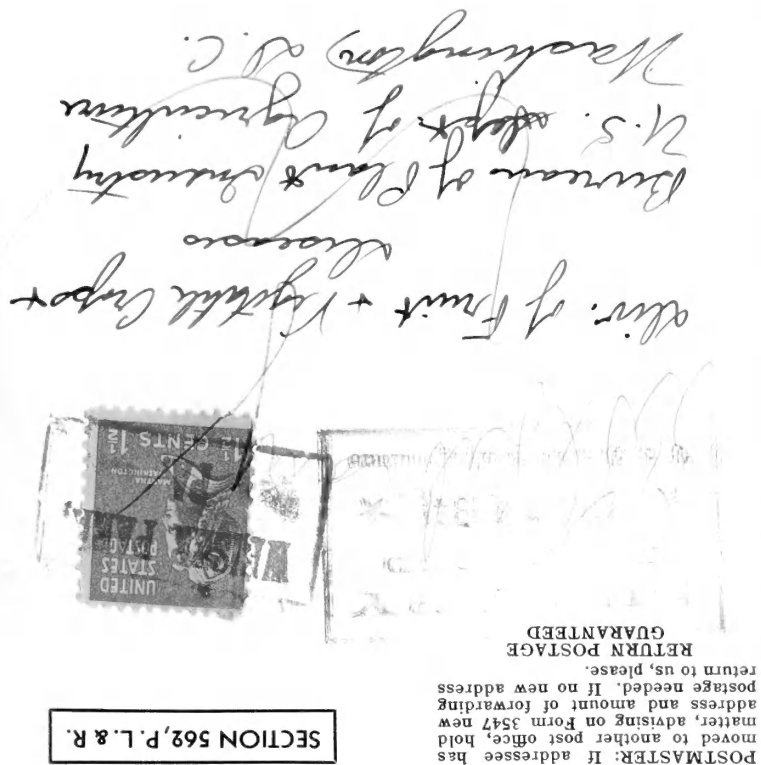 POSTMASTER: If addressee has
moved to another post office, hold
matter, advising on Form 3547 new
address and amount of forwarding
postage needed. If no new address
return to us, please.
RETURN POSTAGE
GUARANTEED
SECTION 562, P. L. & R.
UNITED
STATES
POSTAGE
MARTHA
WASHINGTON
1½ CENTS 1½
Div. of Fruit + Vegetable Crops +
Diseases
Bureau of Plant Industry
U.S. Dept of Agriculture
Washington D.C.